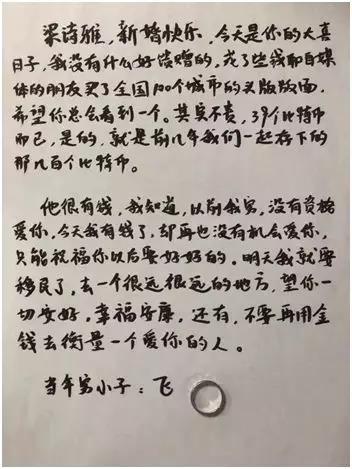 梁诗雅，新婚快乐，今天是你的大喜
日子，我没有什么好馈赠的，花了些钱即自媒
体的朋友买了全国100个城市的头版版面，
希望你总会看到一个。其实不贵，39个比特币
而已，是的，就是前几年我们一起存下的
那几百个比特币。
他很有钱，我知道，以前我穷，没有资格
爱你，今天我有钱了，却再也没有机会爱你，
只能祝福你以后要好好的。明天我就要
移民了，去一个很远很远的地方，望你一
切安好，幸福安康，还有，不要再用金
钱去衡量一个爱你的人。
当年穷小子：飞